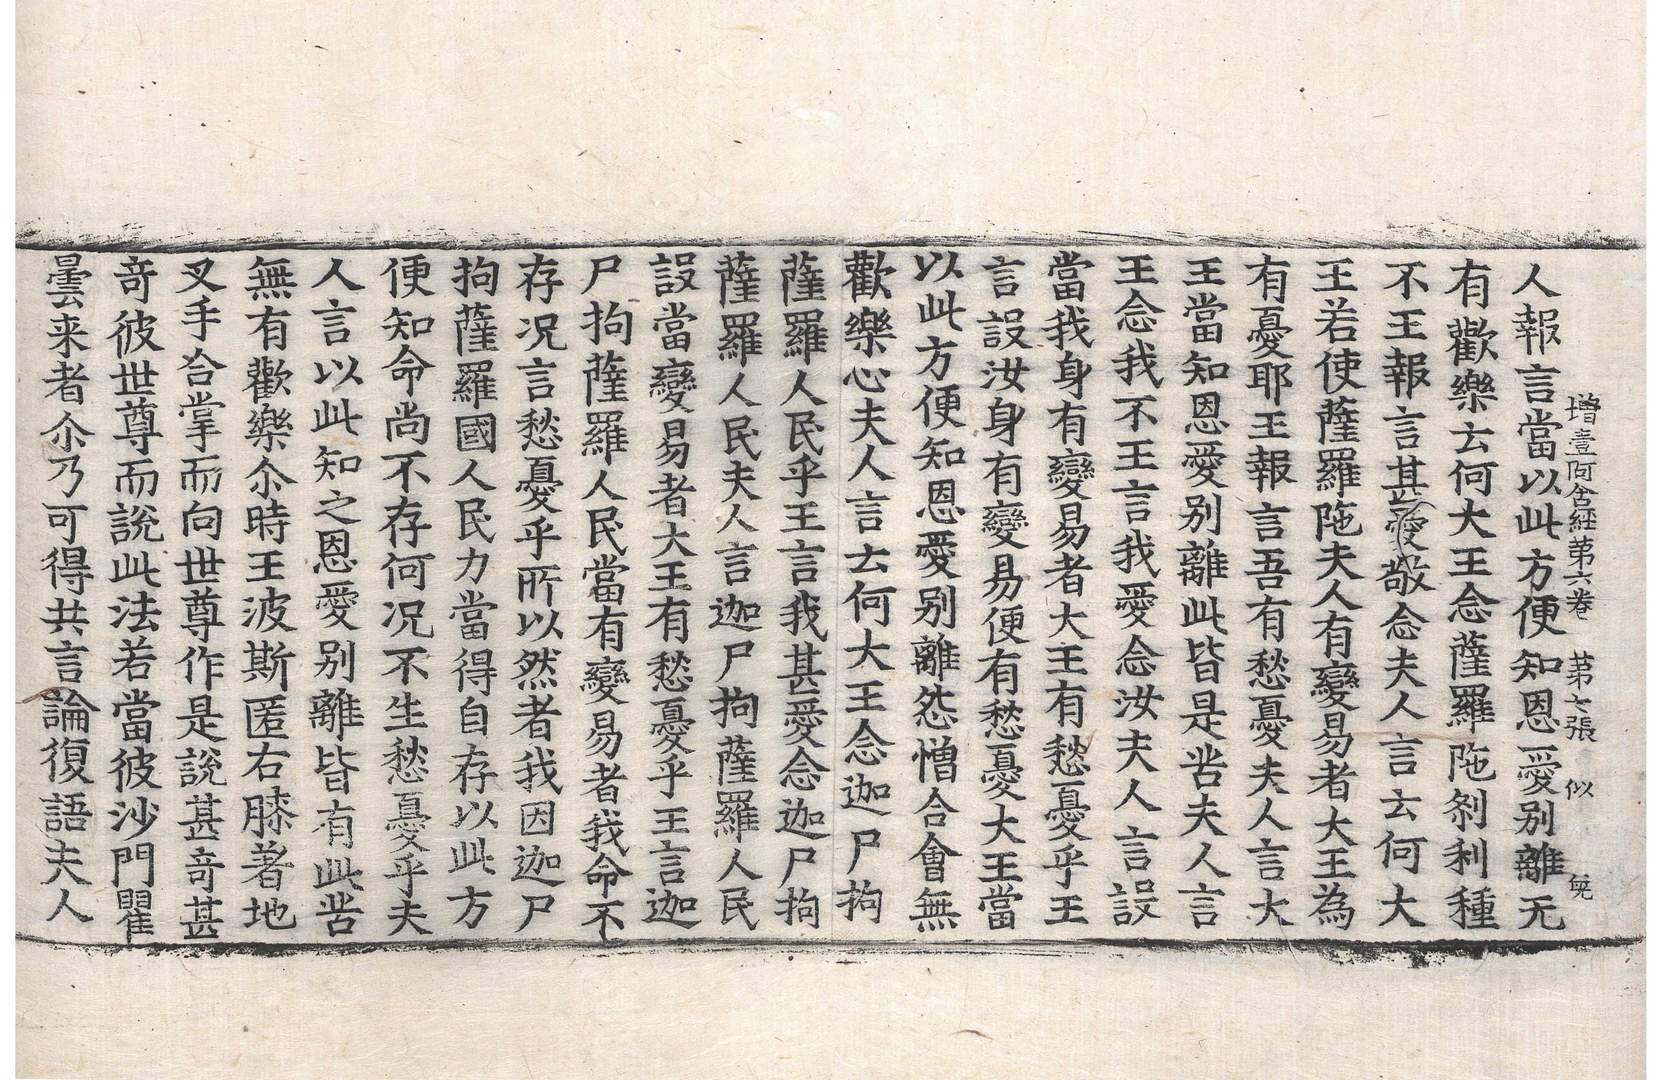 增壹阿含経第六卷 第七張 似
人報言當以此方便知恩愛别離无
有歡樂云何大王念薩羅陁刹利種
不王報言甚愛敬念夫人言云何大
王若使薩羅陁夫人有變易者大王為
有憂耶王報言吾有愁憂夫人言大
王當知恩愛别離此皆是苦夫人言
王念我不王言我愛念汝夫人言設
當我身有變易者大王有愁憂乎王
言設汝身有變易便有愁憂大王當
以此方便知恩愛别離怨憎合會無
歡樂心夫人言云何大王念迦尸拘
薩羅人民乎王言我甚愛念迦尸拘
薩羅人民夫人言迦尸拘薩羅人民
設當變易者大王有愁憂乎王言迦
尸拘薩羅人民當有變易者我命不
存况言愁憂乎所以然者我因迦尸
拘薩羅國人民力當得自存以此方
便知命尚不存何况不生愁憂乎夫
人言以此知之恩愛别離皆有此苦
無有歡樂尒時王波斯匿右膝著地
叉手合掌而向世尊作是說甚奇甚
奇彼世尊而說此法若當彼沙門瞿
曇来者尒乃可得共言論復語夫人